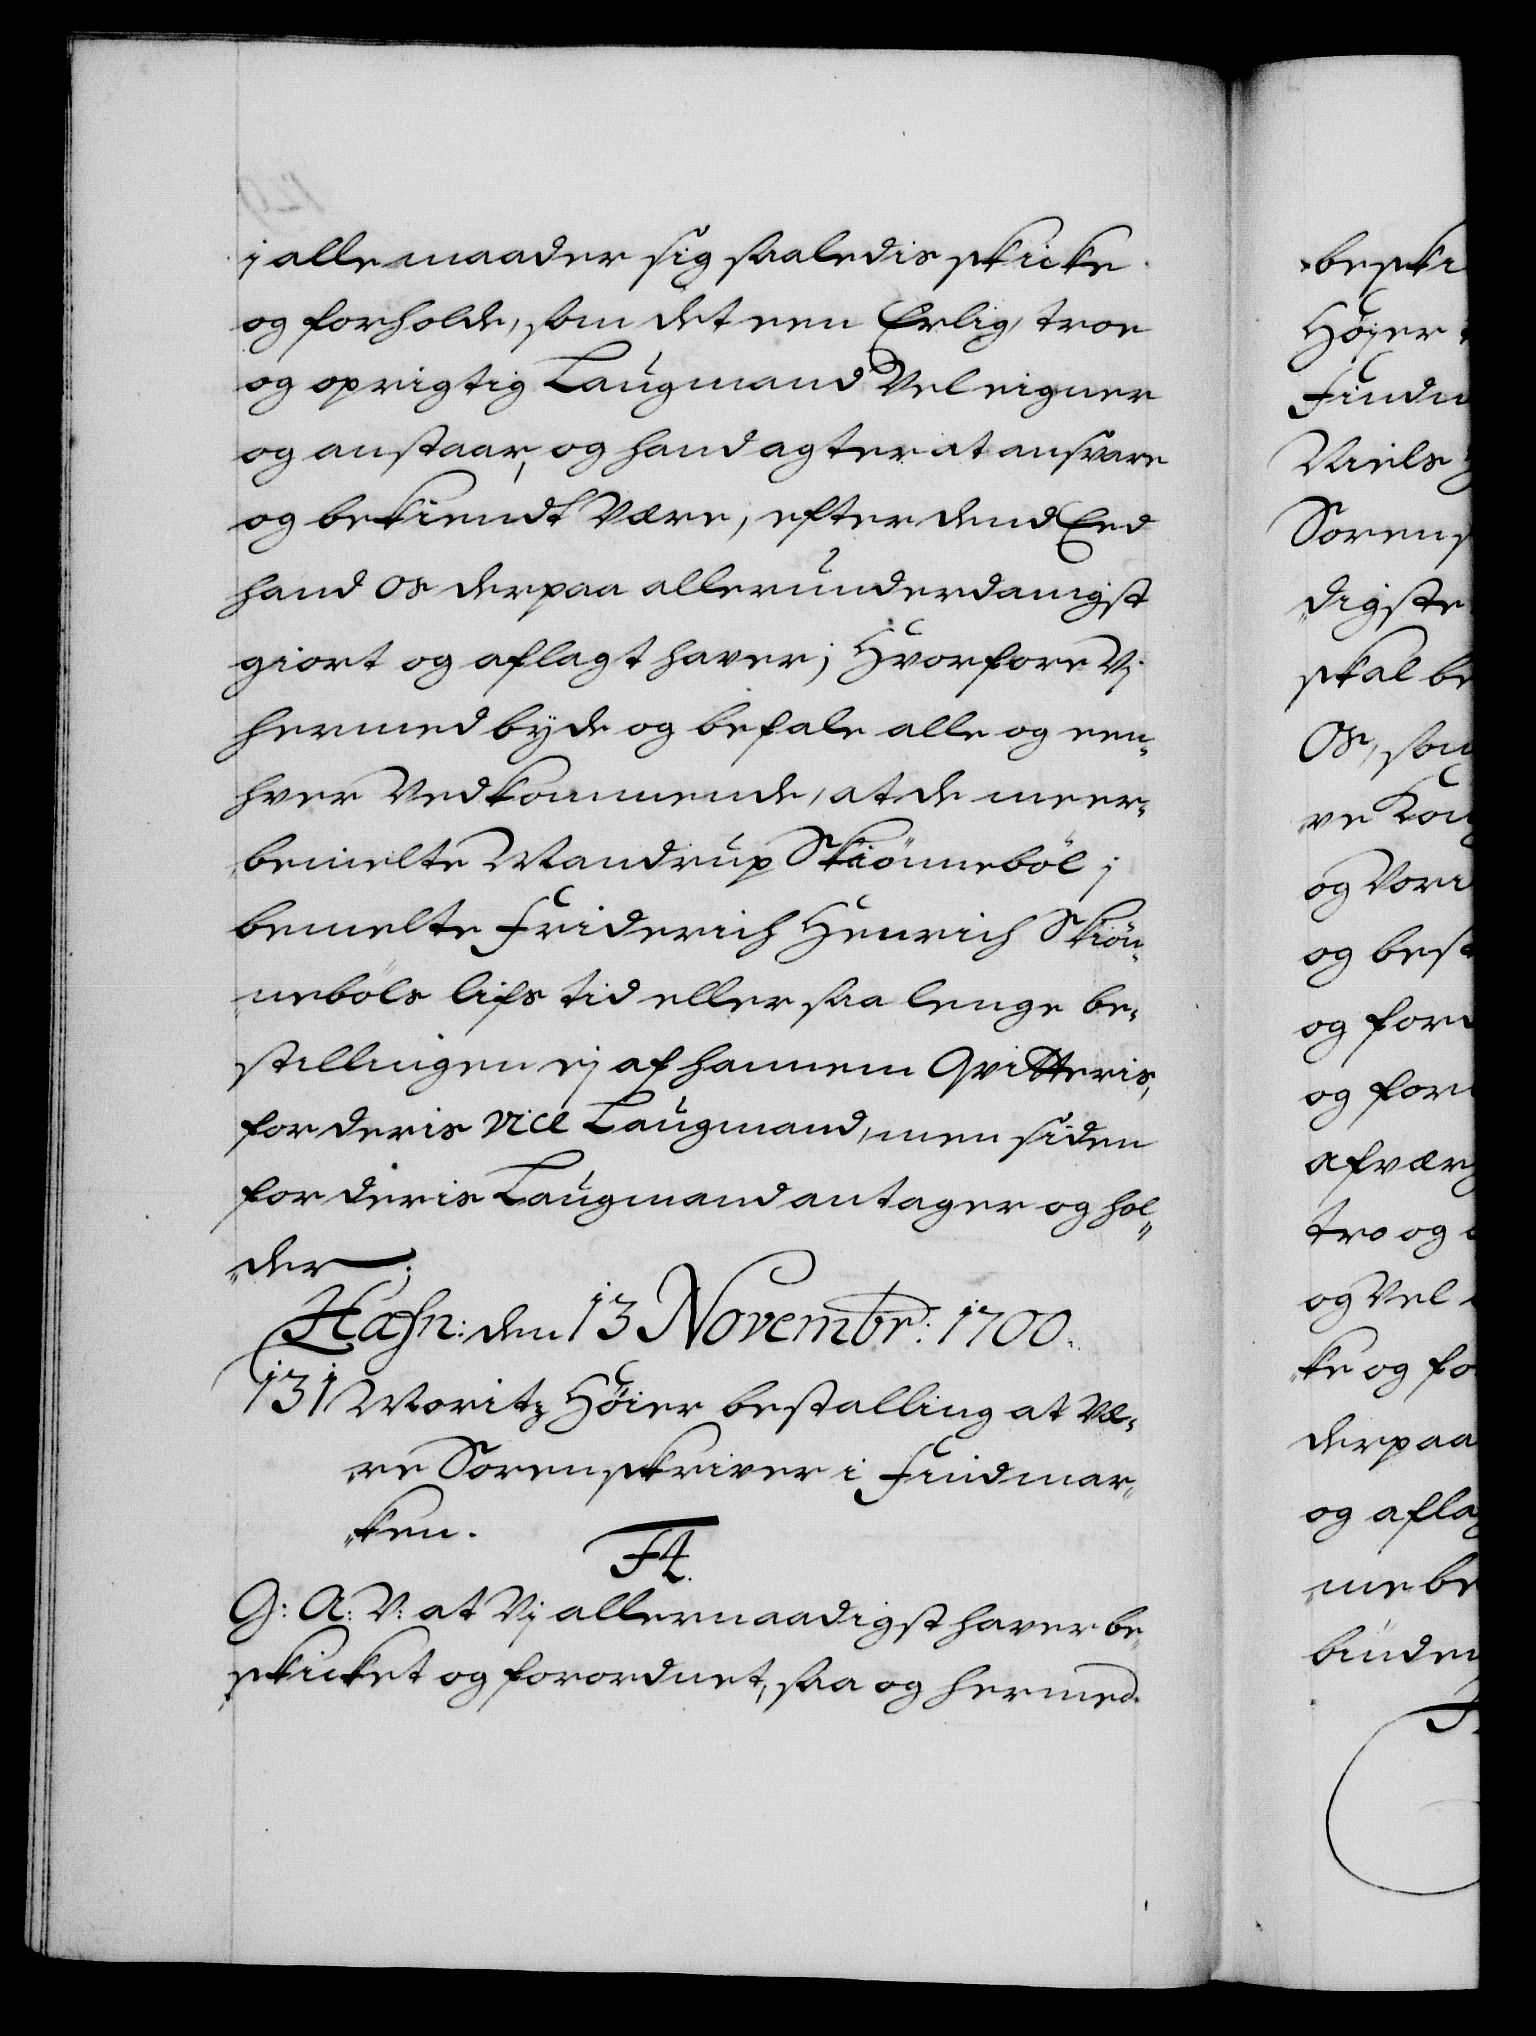 i alle maader sig saaledis skicke
og forholde, som det een Erlig, troe
og oprigtig Laugmand Vel eigner
og anstaar, og hand agter at ansvare
og bekiendt Være, efter dend Eed
hand os derpaa allerunderdanigst
giort og aflagt haver; Hvorfore Vi
hermed byde og befale alle og een„
hver Vedkommende, at de meer„
„bemelte Mandrup Skiönneböl i
bemelte Friderich Henrich Skiön„
„neböls lifs tid eller saa lenge be„
stillingen ej af hannem Qvitteris,
for deris vice Laugmand, men siden
for deris Laugmand antager og hol„
„der;
Hafn: den 13 Novembr: 1700.
131 Moritz Höier bestalling at Væ„
„re Sorenskriver i Findmar„
„ken.
F4.
G: A: V: at Vi allernaadigst haver be„
„skicket og forordnet, saa og hermed
beski
Höjer
Findm
Niels
Sorens
„digste
skal be
Os, som
ve Kong
og Vori
og best
og for
og for
afværg
tro og
og Vel
„ke og fo
derpaa
og aflag
„me be
binden